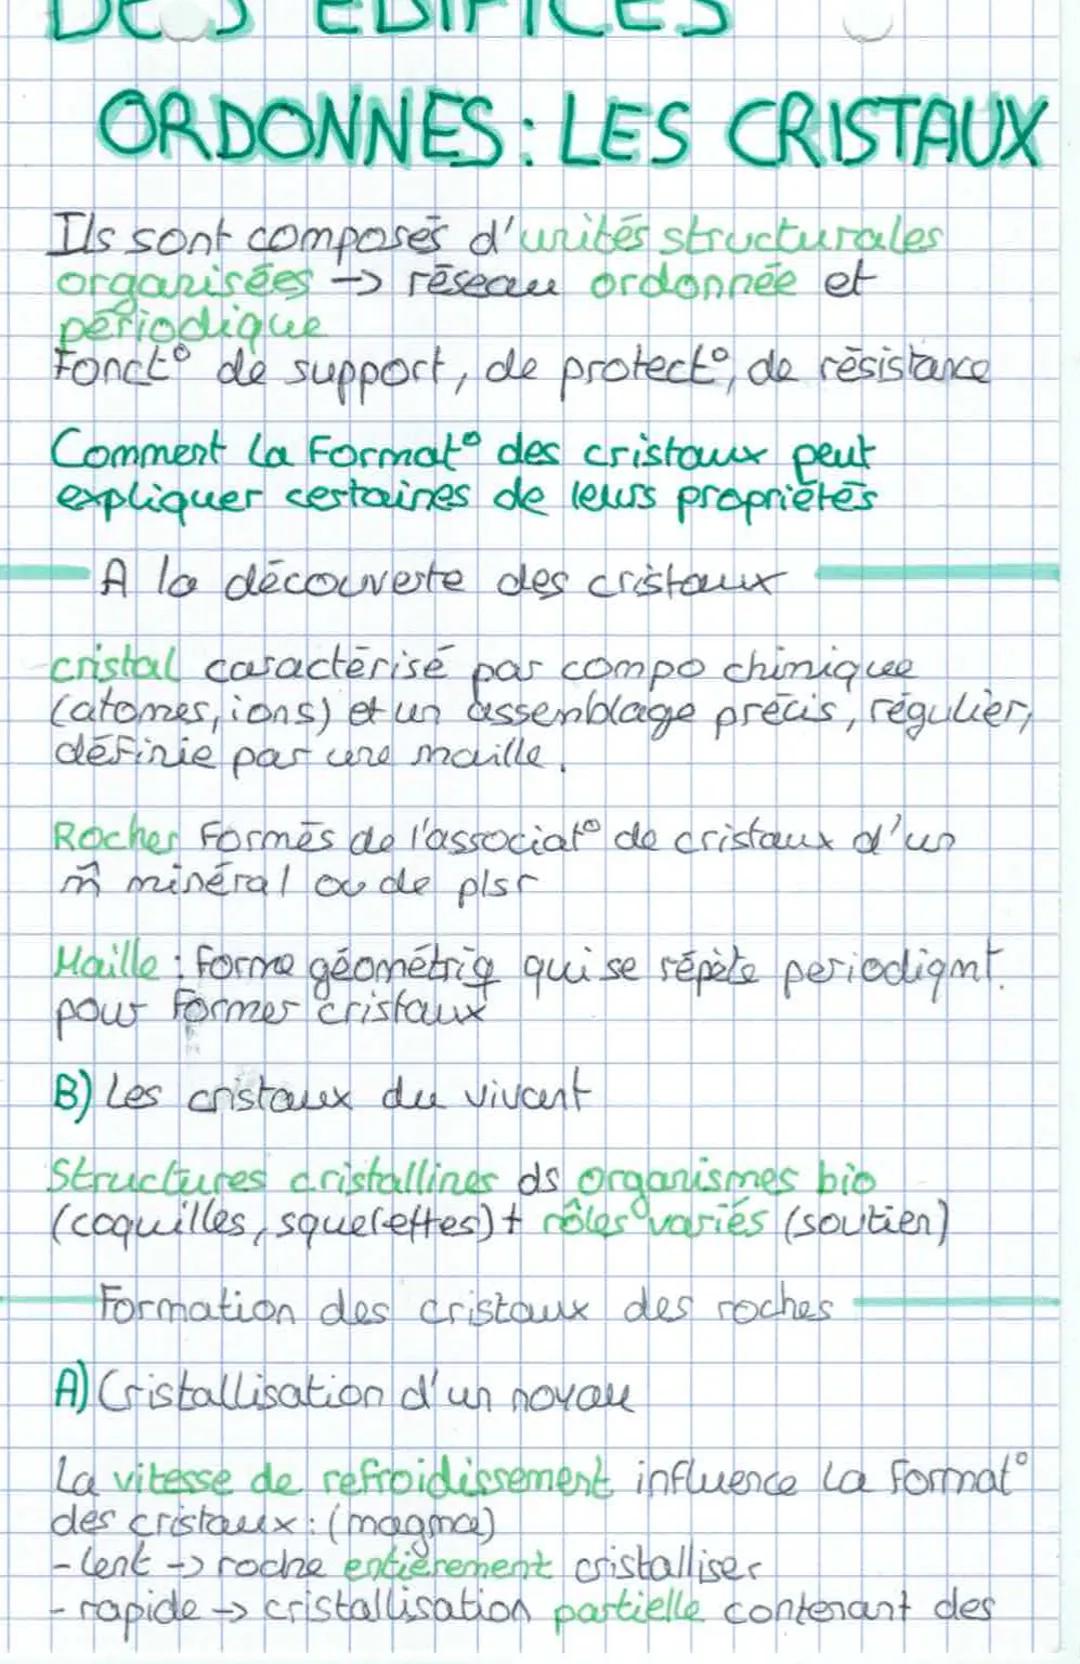 DES EDIFICES
ORDONNES : LES CRISTAUX
Ils sont composés d'unités structurales
organisées -> réseau ordonnée et
périodique
Fonct° de support, de protect°, de résistance
Comment la Format° des cristaux peut
expliquer certaines de leurs propriétés
A la découverte des cristaux
cristal caractérisé par compo chimique
(atomes, ions) et un assemblage précis, régulier,
définie par une maille.
Roches Formés de l'associat° de cristaux d'un
m̂ minéral ou de plsr
Maille : forme géométriq qui se répète periodiqmt.
pour former cristaux
B) Les cristaux du vivant
Structures cristallines ds organismes bio
(coquilles, squelettes) + rôles variés (soutien)
Formation des cristaux des roches
A) Cristallisation d'un noyau
La vitesse de refroidissement influence la format°
des cristaux : (magma)
- lent -> roche entièrement cristalliser
- rapide -> cristallisation partielle contenant des